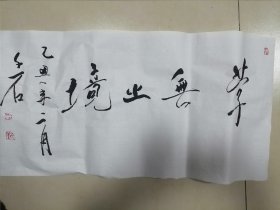 学無止境
乙丑年二月